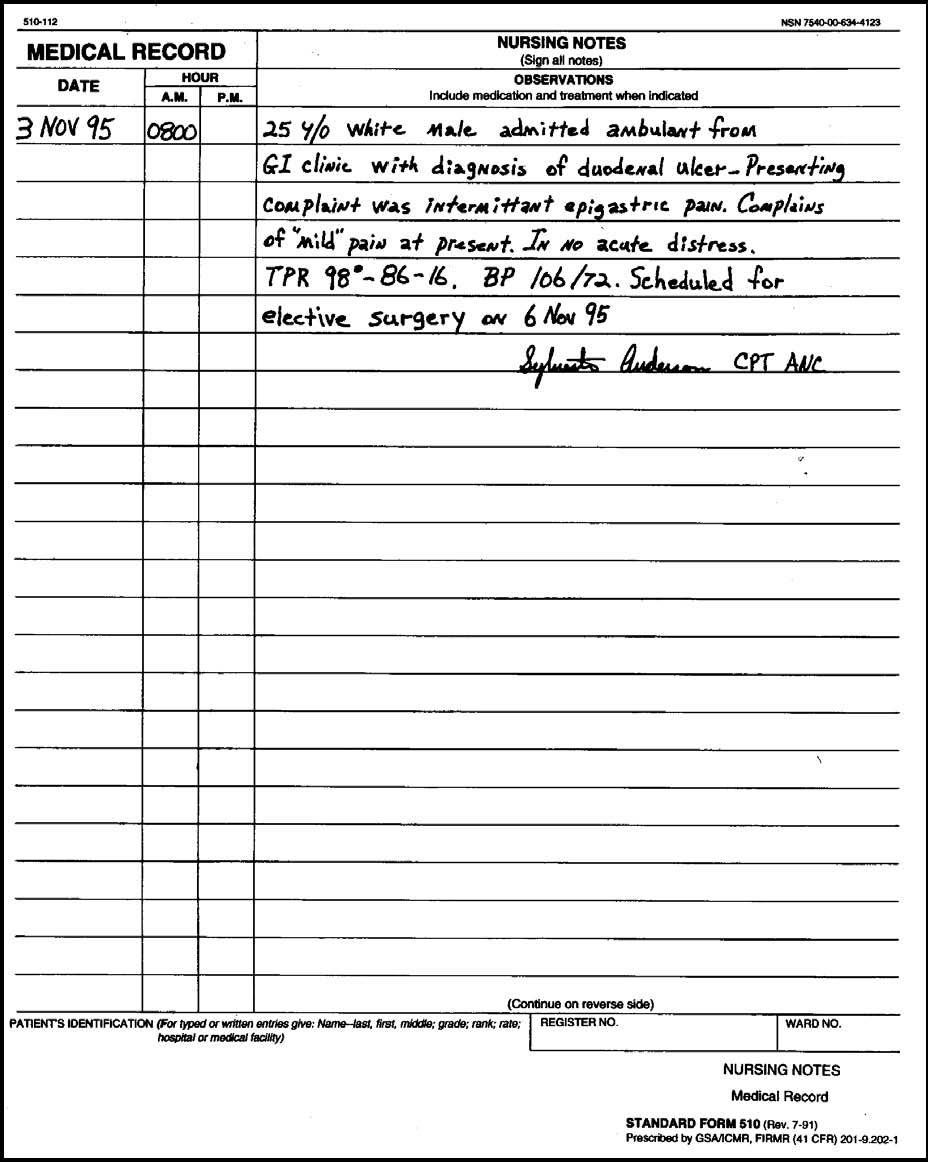 510-112
NSN 7540-00-634-4123
MEDICAL RECORD
NURSING NOTES
(Sign all notes)
DATE
HOUR
A.M.
P.M.
OBSERVATIONS
Include medication and treatment when indicated
3 NOV 95 0800 25 y/o white male admitted ambulant from
GI clinic with diagnosis of duodenal ulcer - Presenting
complaint was intermittant epigastric pain. Complains
of "mild" pain at present. In no acute distress.
TPR 98° - 86 - 16. BP 106/72. Scheduled for
elective surgery on 6 Nov 95
Anderson CPT ANC
(Continue on reverse side)
PATIENT'S IDENTIFICATION (For typed or written entries give: Name–last, first, middle; grade; rank; rate;
hospital or medical facility)
REGISTER NO.
WARD NO.
NURSING NOTES
Medical Record
STANDARD FORM 510 (Rev. 7-91)
Prescribed by GSA/ICMR, FIRMR (41 CFR) 201-9.202-1